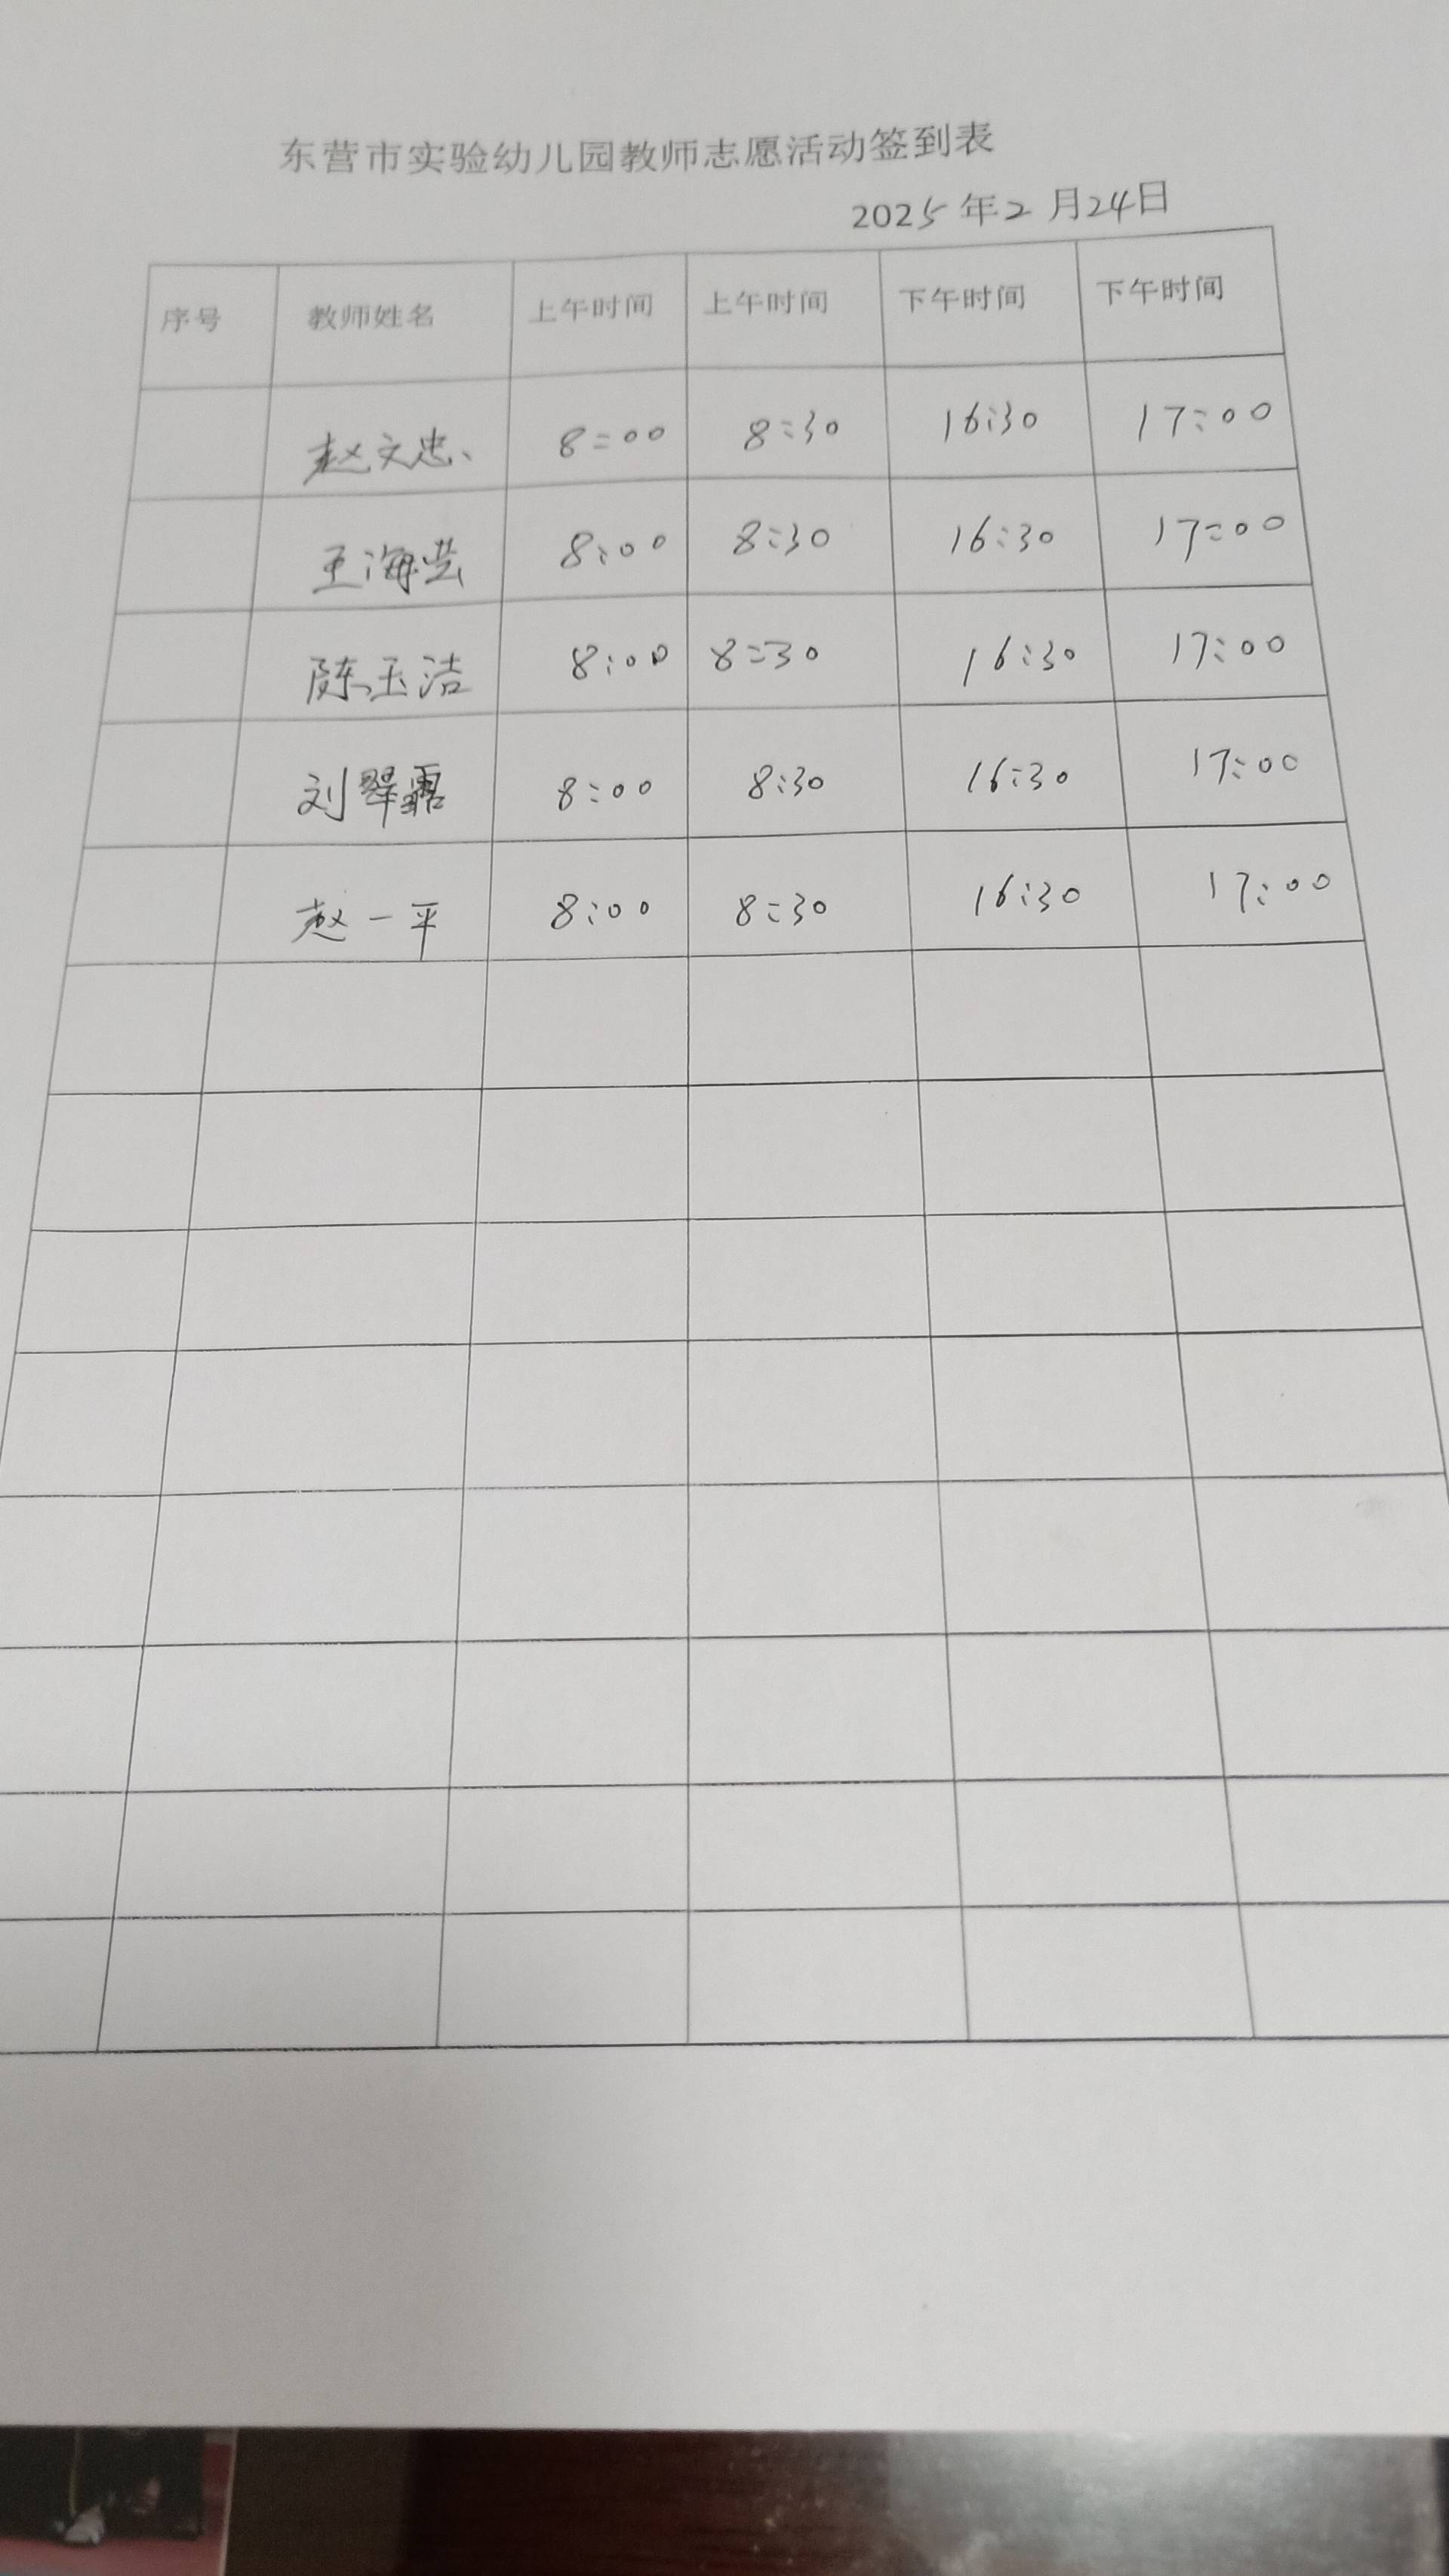 东营市实验幼儿园教师志愿活动签到表
2025年2月24日
序号 教师姓名 上午时间 上午时间 下午时间 下午时间
赵文忠、 8:00 8:30 16:30 17:00
王海芸 8:00 8:30 16:30 17:00
陈玉洁 8:00 8:30 16:30 17:00
刘翠露 8:00 8:30 16:30 17:00
赵一平 8:00 8:30 16:30 17:00